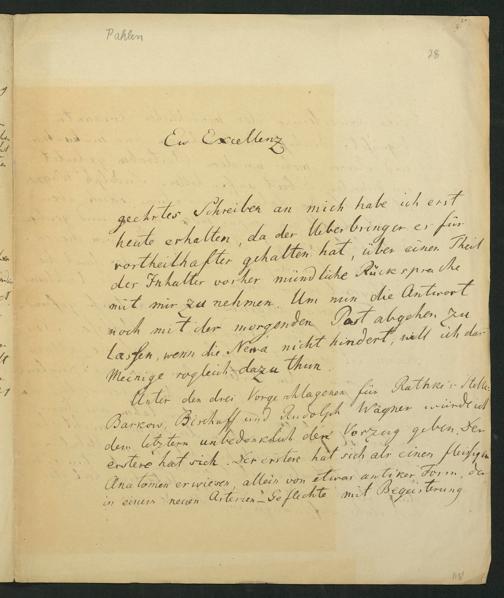 Pahlen
28
Ew Excellenz
geehrtes Schreiben an mich habe ich erst
heute erhalten, da der Ueberbringer es für
vortheilhafter gehalten hat, über einen Theil
der Inhalter vorher mündliche Rücksprache
mit mir zu nehmen. Um nun die Antwort
noch mit der morgenden Post abgehen zu
lassen, wenn die Newa nicht hindert, will ich das
Meinige sogleich dazu thun.
Unter den drei Vorgeschlagenen für Rathke's Stelle
Barkow, Bischoff und Rudolph Wagner würde ich
dem letztern unbedenklich den Vorzug geben. Der
erstere hat sich. Der erstere hat sich als einen fleißigen
Anatomen erwiesen, allein von etwas antiker Form, der
in einem neuen Arterien-Geflechte mit Begeisterung